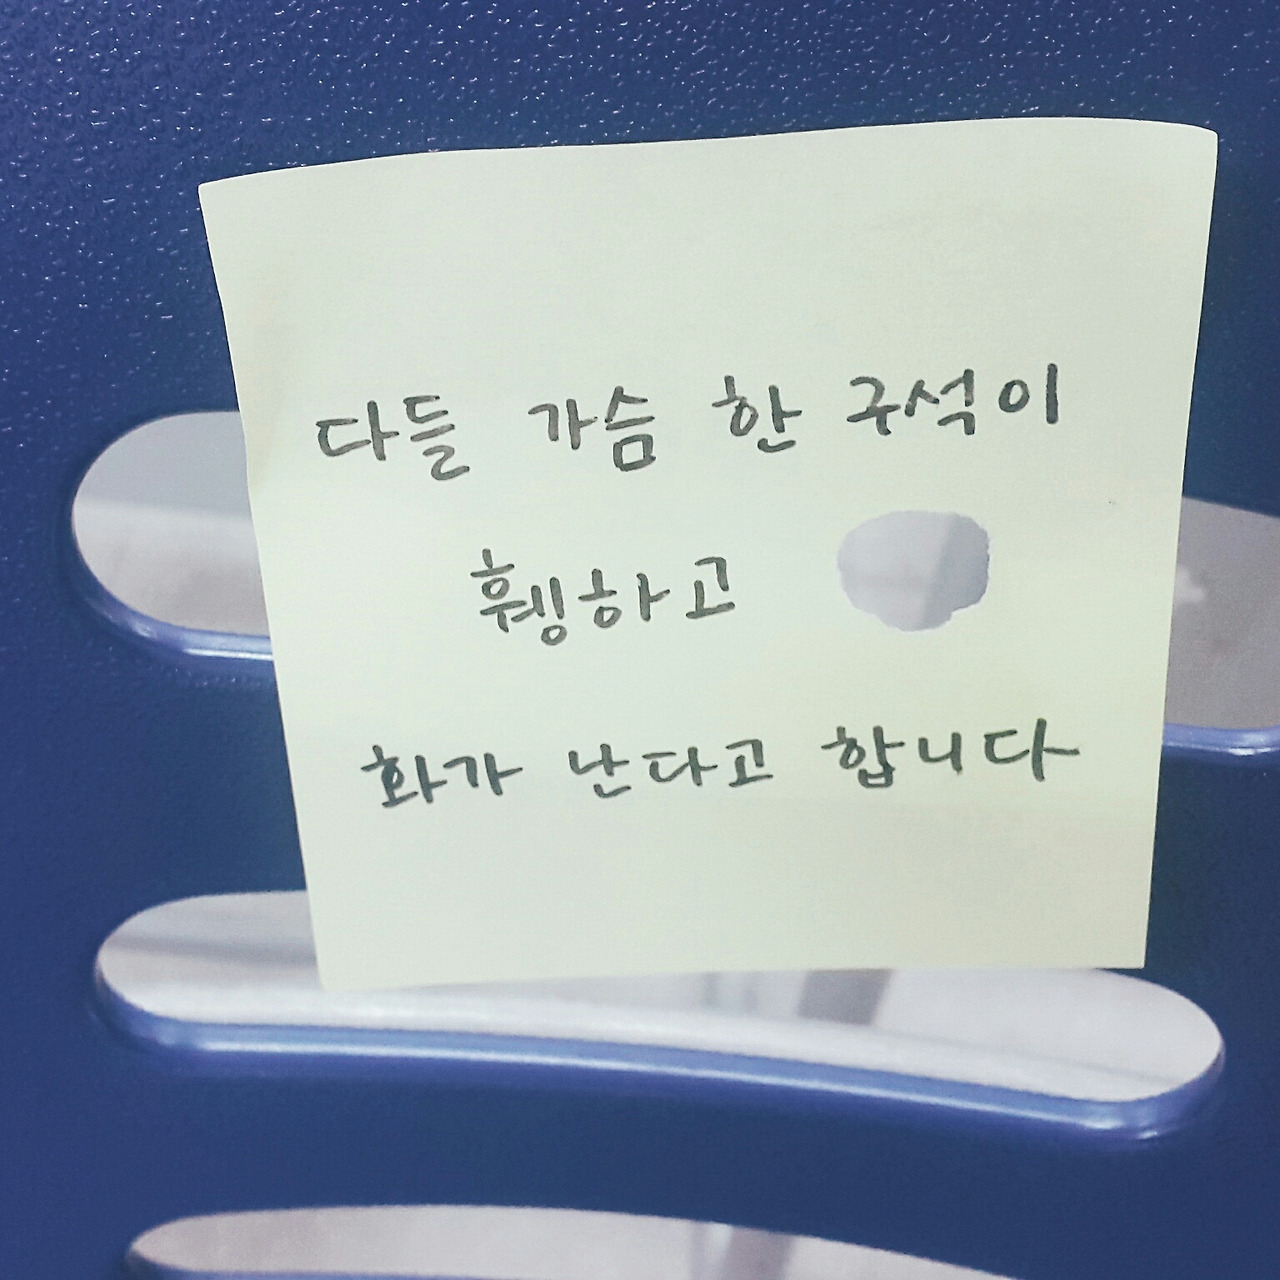 다들 가슴 한 구석이
휑하고
화가 난다고 합니다